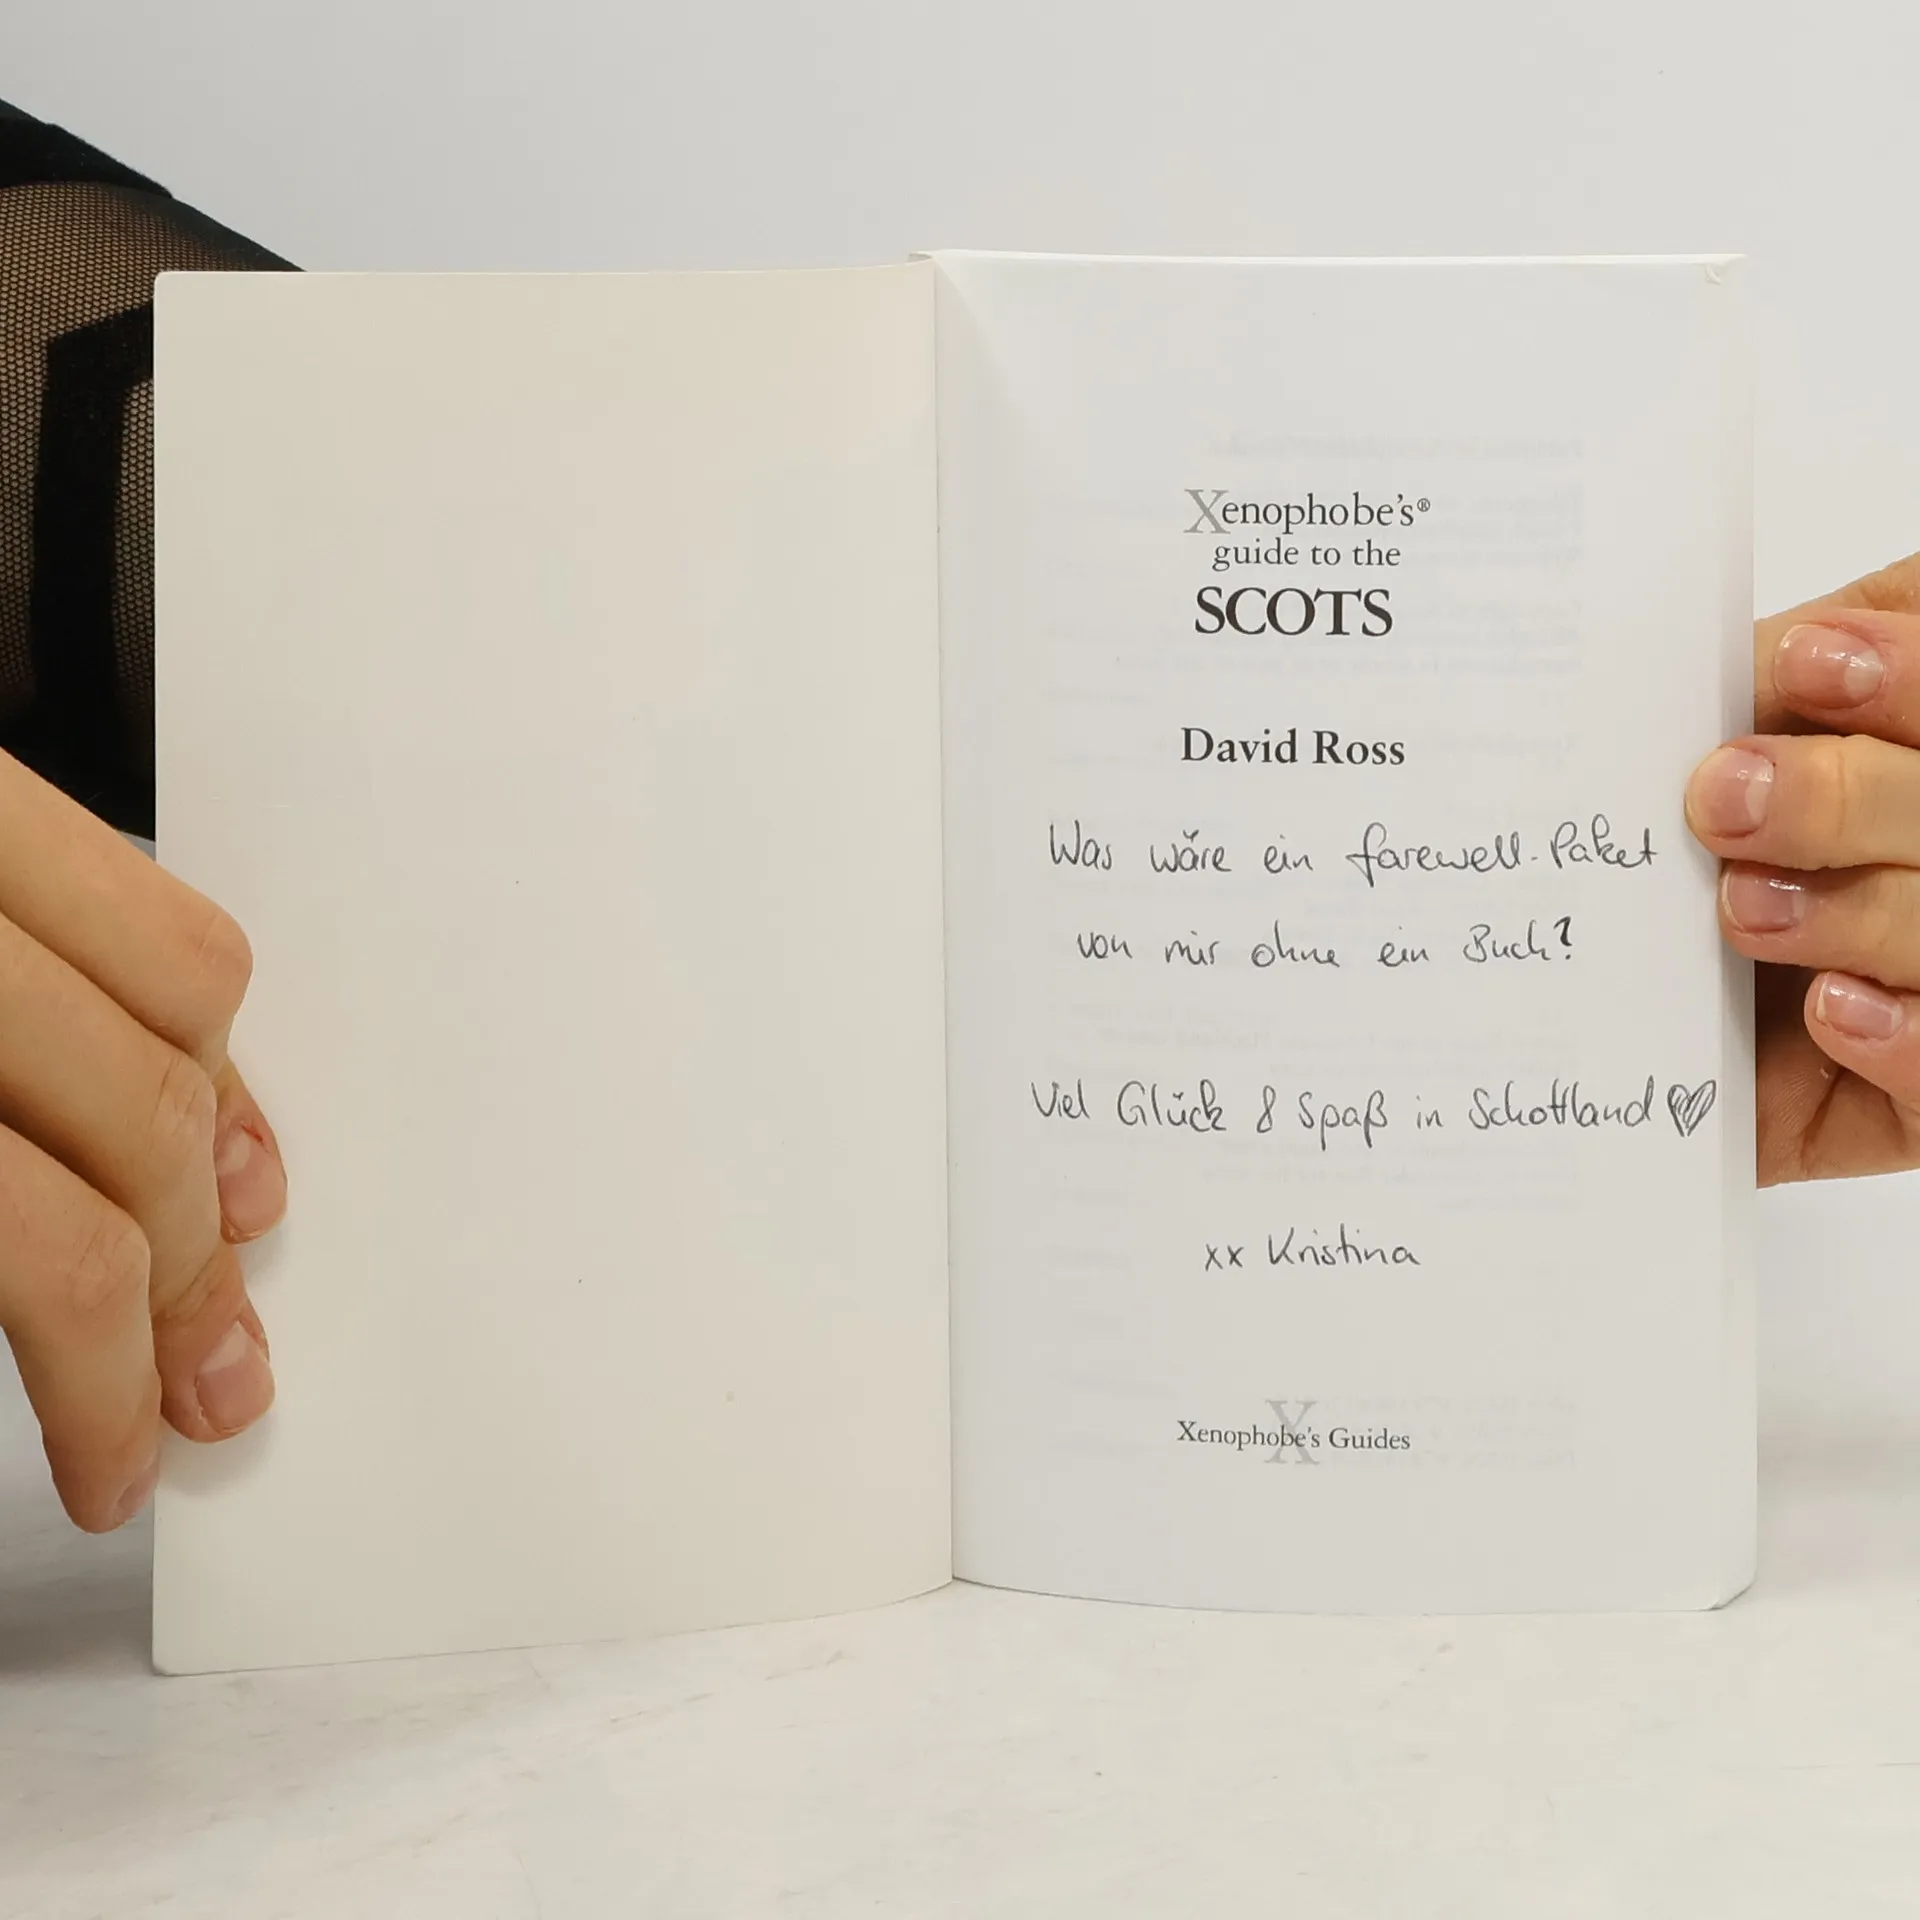 Xenophobe's®
guide to the
SCOTS
David Ross
Was wäre ein farewell-Paket
von mir ohne ein Buch?
Viel Glück & Spaß in Schottland ♥
xx Kristina
Xenophobe's Guides